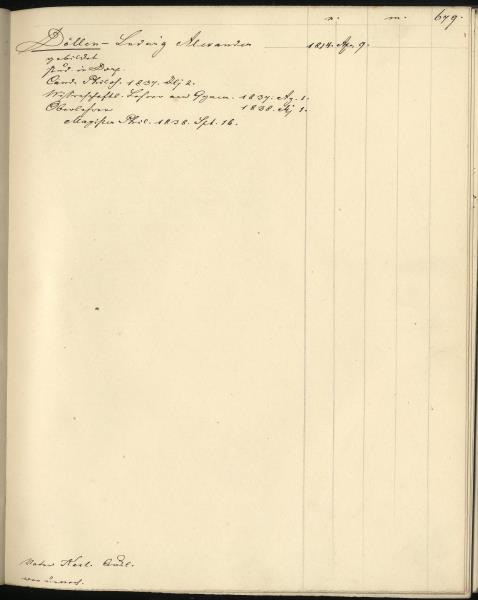 n. m. 679.
Döllen - Ludwig Alexander 1814. Ap. 9.
gebildet
stud. in Dorp.
Cand. Philos. 1837. Dbj 2.
Wissenschaftl. Lehrer am Gymn. 1837. Ag. 1.
Oberlehrer 1838. Aj 1.
Magister Phil. 1838. Spt. 16.
Vater